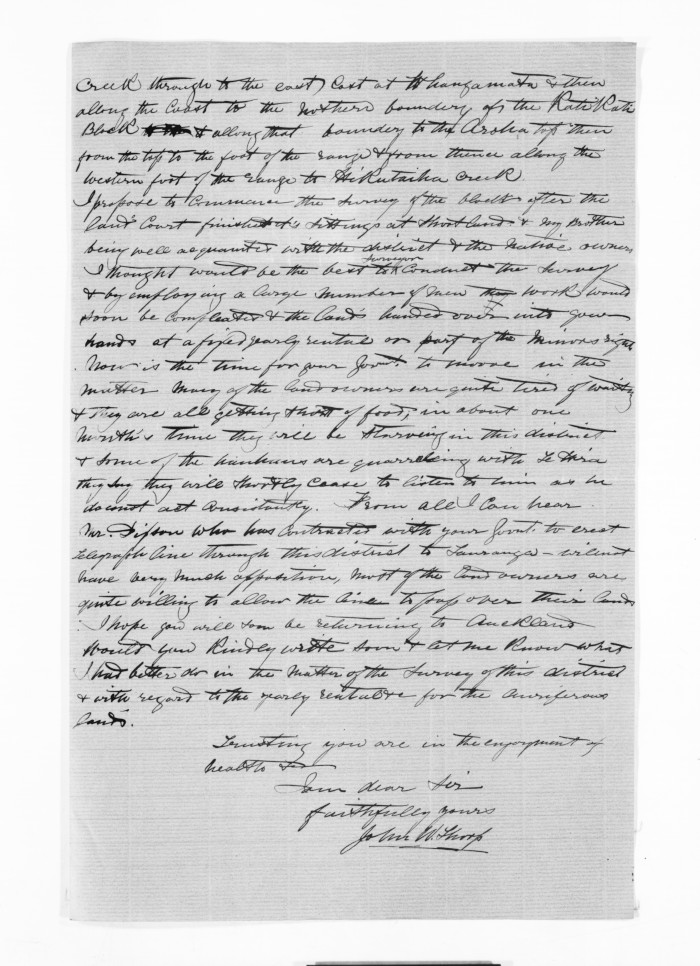 Creek through to the east Cost at Whangamata & then
allong the Coast to the northern boundery of the Kati Kati
Block & allong that boundery to the Aroha top then
from the top to the foot of the range & from thence along the
western foot of the range to Hikutaiha Creek
I propose to Commence the Survey of the block after the
land Court finished its Sittings at Shortland & My Brother
being well acquainted with the district & the Native owners
I thought would be the best surveyor to Conduct the Survey
& by employing a large number of men the work would
soon be compleated & the lands handed over into your
hands at a fixed yearly rental or part of the Miners right
Now is the time for your Govt. to moove in the
matter Many of the land owners are quite tired of waiting
& they are all getting short of food, in about one
Month's time they will be Starving in this district
& some of the hauhaus are quarreling with Te Hira
they say they will shortly Cease to listen to him as he
do const act Consistantly. From all I Can hear
Mr. who has Contracted with your Govt. to erect
telegraph line through this district to Tauranga – will not
have very much opposition, most of the land owners are
quite willing to allow the line to pass over their lands
I hope you will soon be returning to Auckland
Would you Kindly write soon & let me Know what
I had better do in the Matter of the Survey of this district
& with regard to the yearly rental &c for the Auriferous
lands.
Trusting you are in the enjoyment of
health &c
I am dear Sir
faithfully yours
John W. Thorp